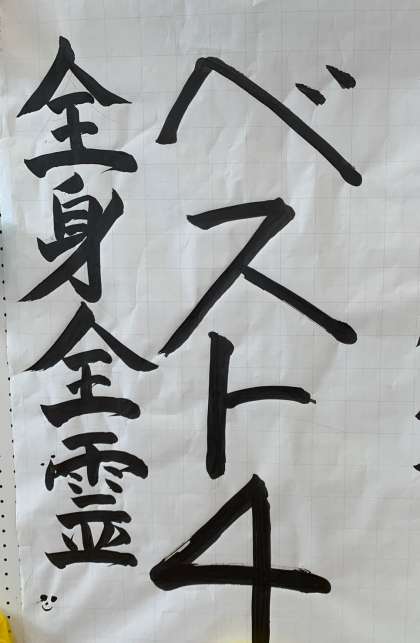 ベスト4
全身全霊